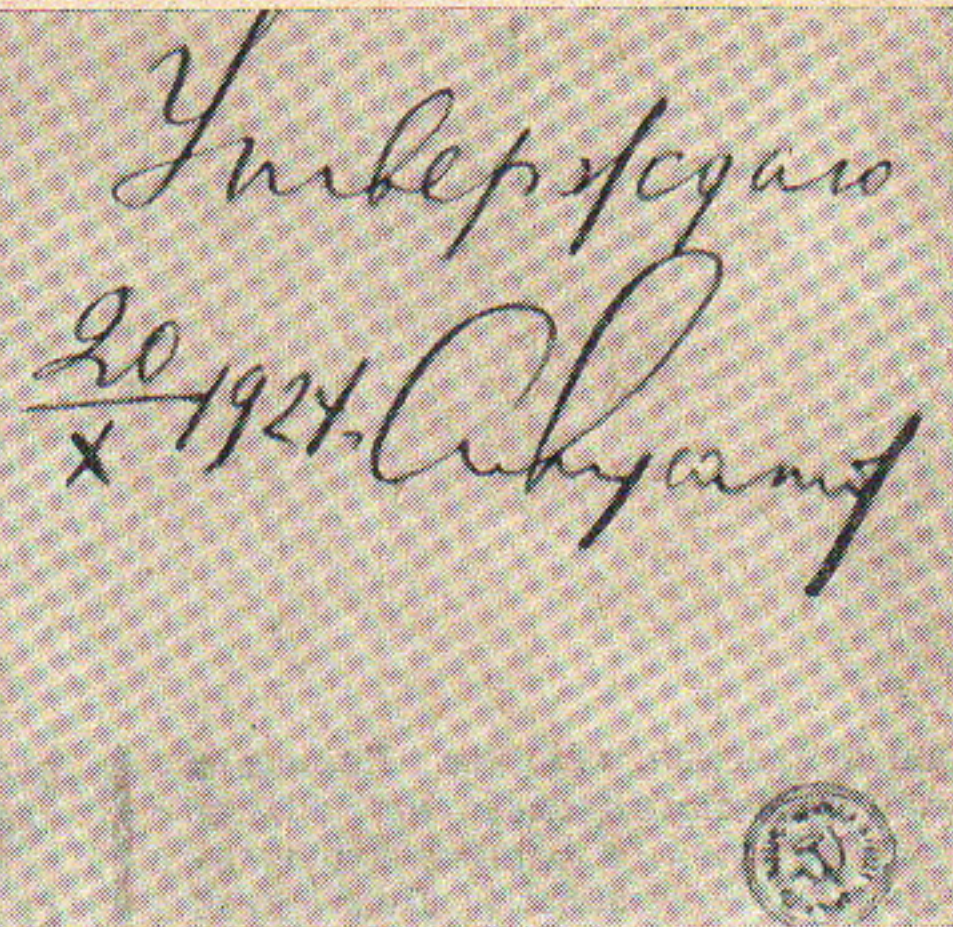 Утверждаю
20/X 1924.